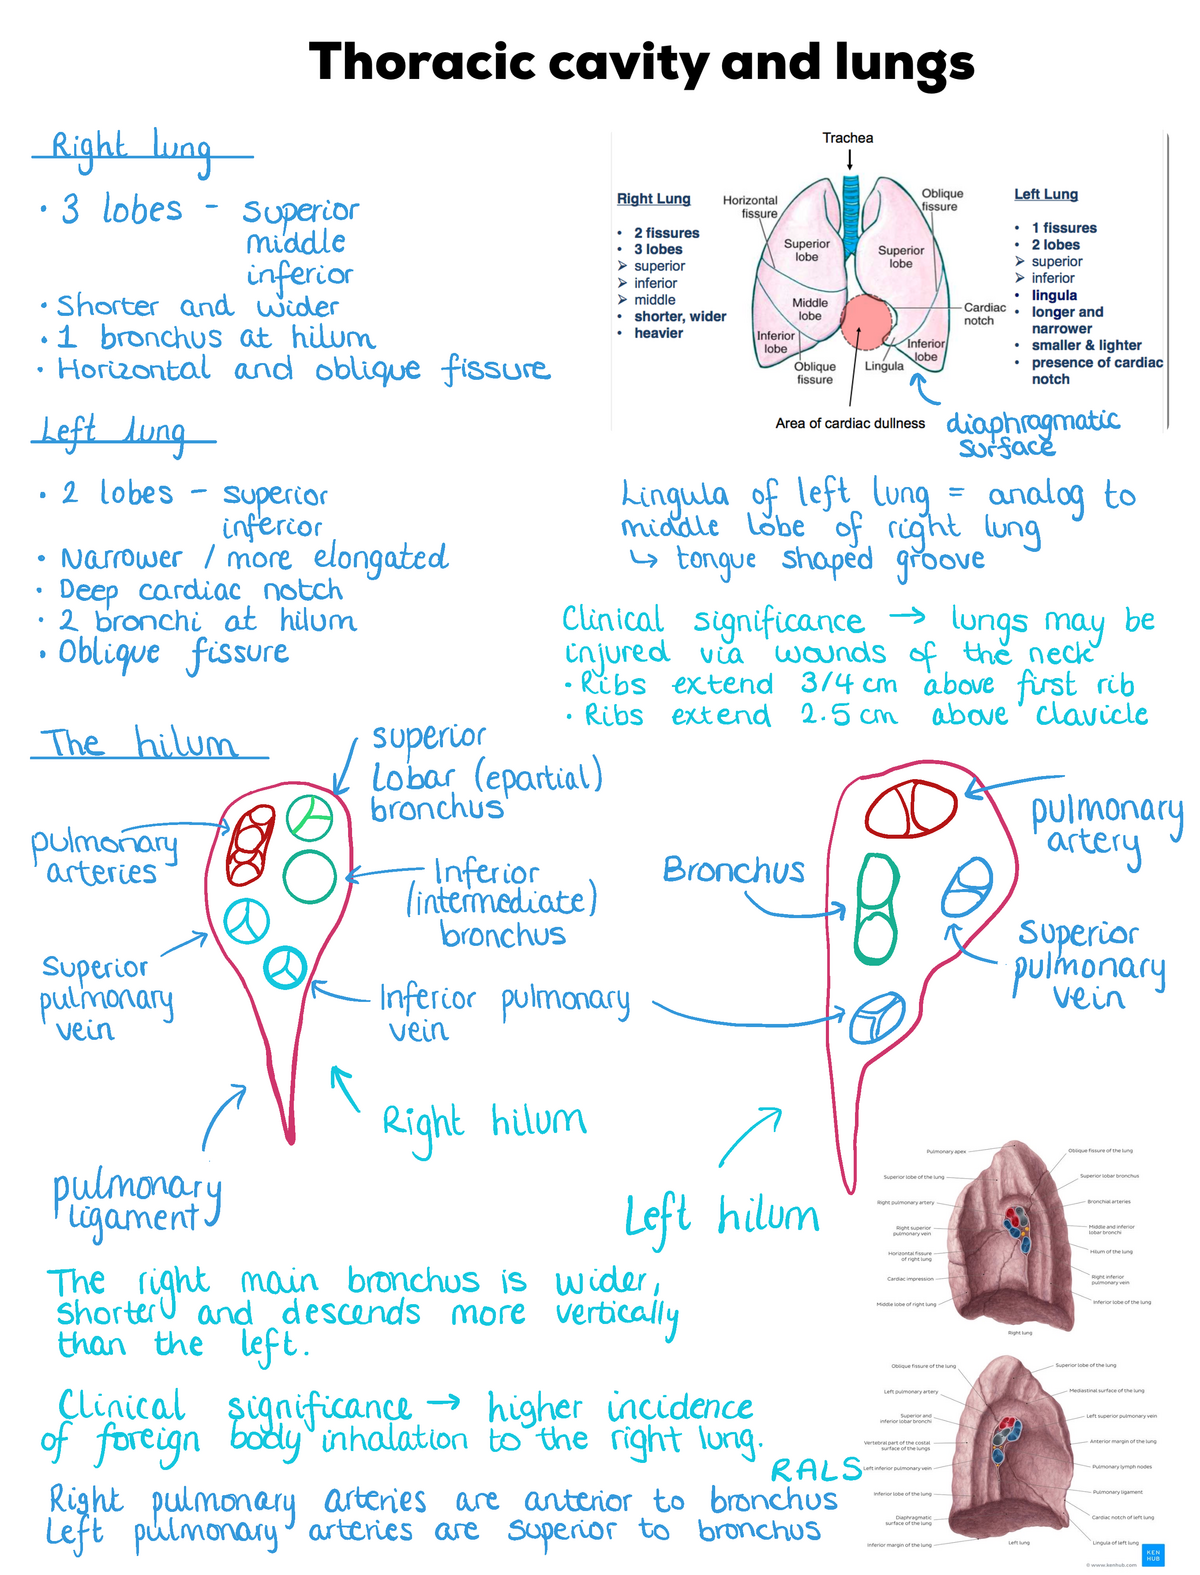 Thoracic cavity and lungs
Right lung
• 3 lobes - superior
middle
inferior
• Shorter and wider
• 1 bronchus at hilum
• Horizontal and oblique fissure
Left lung
• 2 lobes - superior
inferior
• Narrower / more elongated
• Deep cardiac notch
• 2 bronchi at hilum
• Oblique fissure
Trachea
Right Lung
• 2 fissures
• 3 lobes
➢ superior
➢ inferior
➢ middle
• shorter, wider
• heavier
Horizontal
fissure
Oblique
fissure
Superior
lobe
Superior
lobe
Middle
lobe
Cardiac
notch
Inferior
lobe
Inferior
lobe
Oblique
fissure
Lingula
Area of cardiac dullness
Left Lung
• 1 fissures
• 2 lobes
➢ superior
➢ inferior
• lingula
• longer and
narrower
• smaller & lighter
• presence of cardiac
notch
diaphragmatic
surface
Lingula of left lung = analog to
middle lobe of right lung
↳ tongue shaped groove
Clinical significance → lungs may be
injured via wounds of the neck
• Ribs extend 3/4 cm above first rib
• Ribs extend 2.5 cm above clavicle
The hilum
superior
Lobar (epartial)
bronchus
pulmonary
arteries
Inferior
(intermediate)
bronchus
Superior
pulmonary
vein
Inferior pulmonary
vein
Right hilum
pulmonary
ligament
pulmonary
artery
Bronchus
Superior
pulmonary
vein
Left hilum
The right main bronchus is wider,
shorter and descends more vertically
than the left.
Clinical significance → higher incidence
of foreign body inhalation to the right lung.
RALS
Right pulmonary arteries are anterior to bronchus
Left pulmonary arteries are superior to bronchus
Pulmonary apex
Oblique fissure of the lung
Superior lobe of the lung
Superior lobar bronchus
Right pulmonary artery
Bronchial arteries
Right superior
pulmonary vein
Middle and inferior
lobar bronchi
Horizontal fissure
of right lung
Hilum of the lung
Cardiac impression
Right inferior
pulmonary vein
Middle lobe of right lung
Inferior lobe of the lung
Right lung
Oblique fissure of the lung
Superior lobe of the lung
Left pulmonary artery
Mediastinal surface of the lung
Superior and
inferior lobar bronchi
Left superior pulmonary vein
Vertebral part of the costal
surface of the lungs
Anterior margin of the lung
Left inferior pulmonary vein
Pulmonary lymph nodes
Inferior lobe of the lung
Pulmonary ligament
Diaphragmatic
surface of the lung
Cardiac notch of left lung
Inferior margin of the lung
Left lung
Lingula of left lung
KEN
HUB
© www.kenhub.com